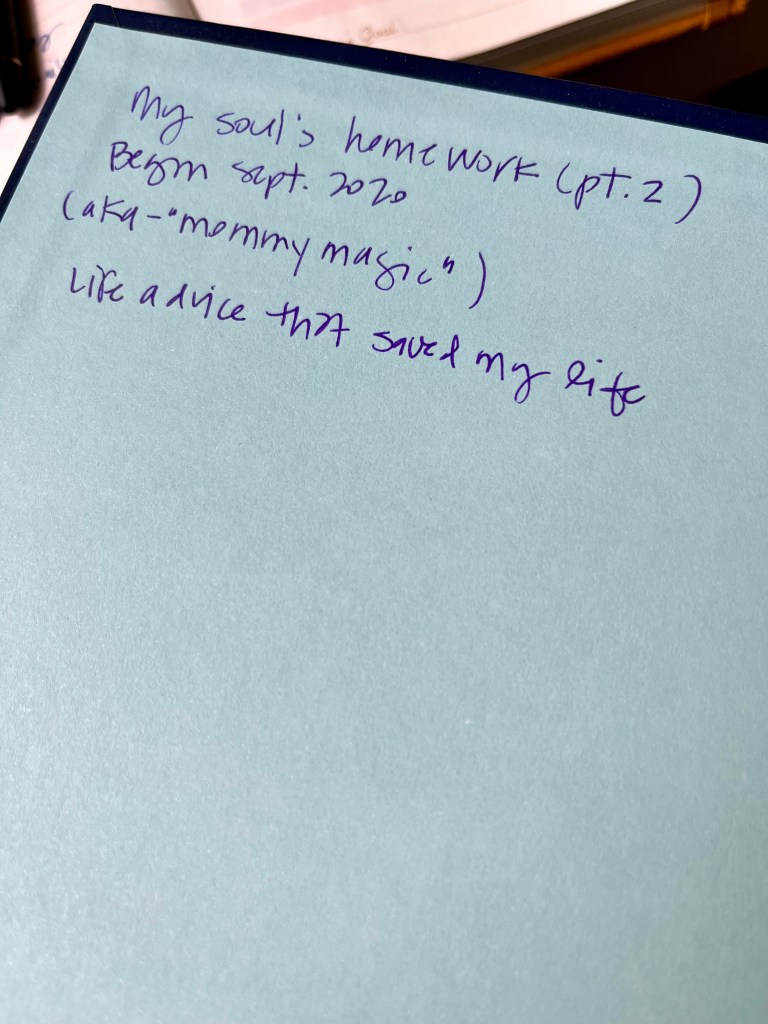 My soul's homework (pt. 2)
Begin Sept. 2020
(aka - "mommy magic")
Life advice that saved my life